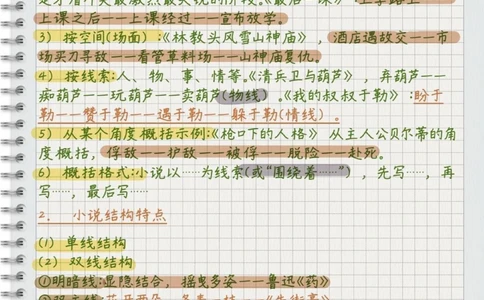 上课之后——上课经过——宣布放学。
3) 按空间(场面):《林教头风雪山神庙》，酒店遇故交——市
场买刀寻敌——看管草料场——山神庙复仇。
4) 按线索:人、物、事、情等。《清兵卫与葫芦》，弄葫芦——
痴葫芦——玩葫芦——卖葫芦(物线)。《我的叔叔于勒》:盼于
勒——赞于勒——遇于勒——躲于勒(情线)。
5) 从某个角度概括示例:《枪口下的人格》 从主人公贝尔蒂的角
度概括，俘敌——护敌——被俘——脱险——赴死。
6) 概括格式:小说以……为线索(或“围绕着……”)，先写……，再
写……，最后写……
2. 小说结构特点
(1) 单线结构
(2) 双线结构
①明暗线:显隐结合，摇曳多姿——鲁迅《药》